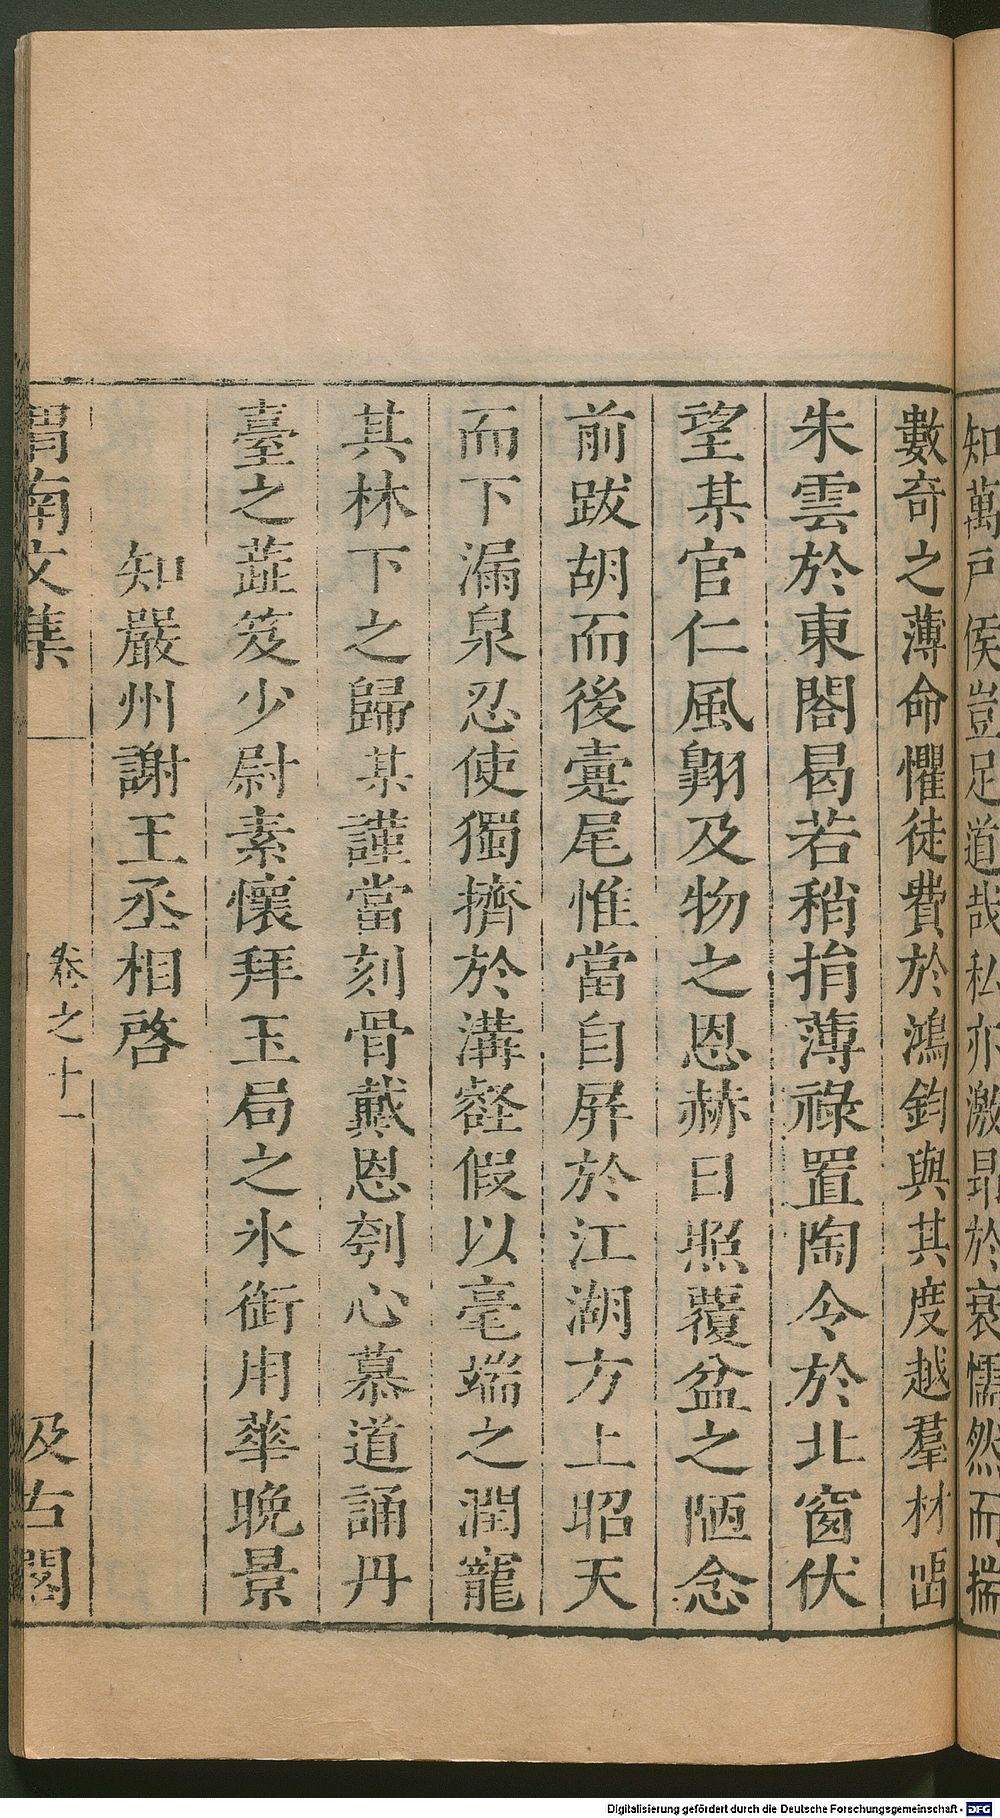 知萬戶侯豈足道哉私亦激昻於衰懦然而揣
數奇之薄命懼徒費於鴻鈞與其度越羣材畱
朱雲於東閤曷若稍捐薄祿置陶令於北窗伏
望某官仁風翺及物之恩赫日照覆盆之陋念
前跋胡而後疐尾惟當自屏於江湖方上昭天
而下漏泉忍使獨擠於溝壑假以毫端之潤寵
其林下之歸某謹當刻骨戴恩刳心慕道誦丹
臺之蘂笈少尉素懷拜玉局之氷銜用華晚景
知嚴州謝王丞相啓
渭南文集
卷之十一
汲古閣
Digitalisierung gefördert durch die Deutsche Forschungsgemeinschaft - DFG